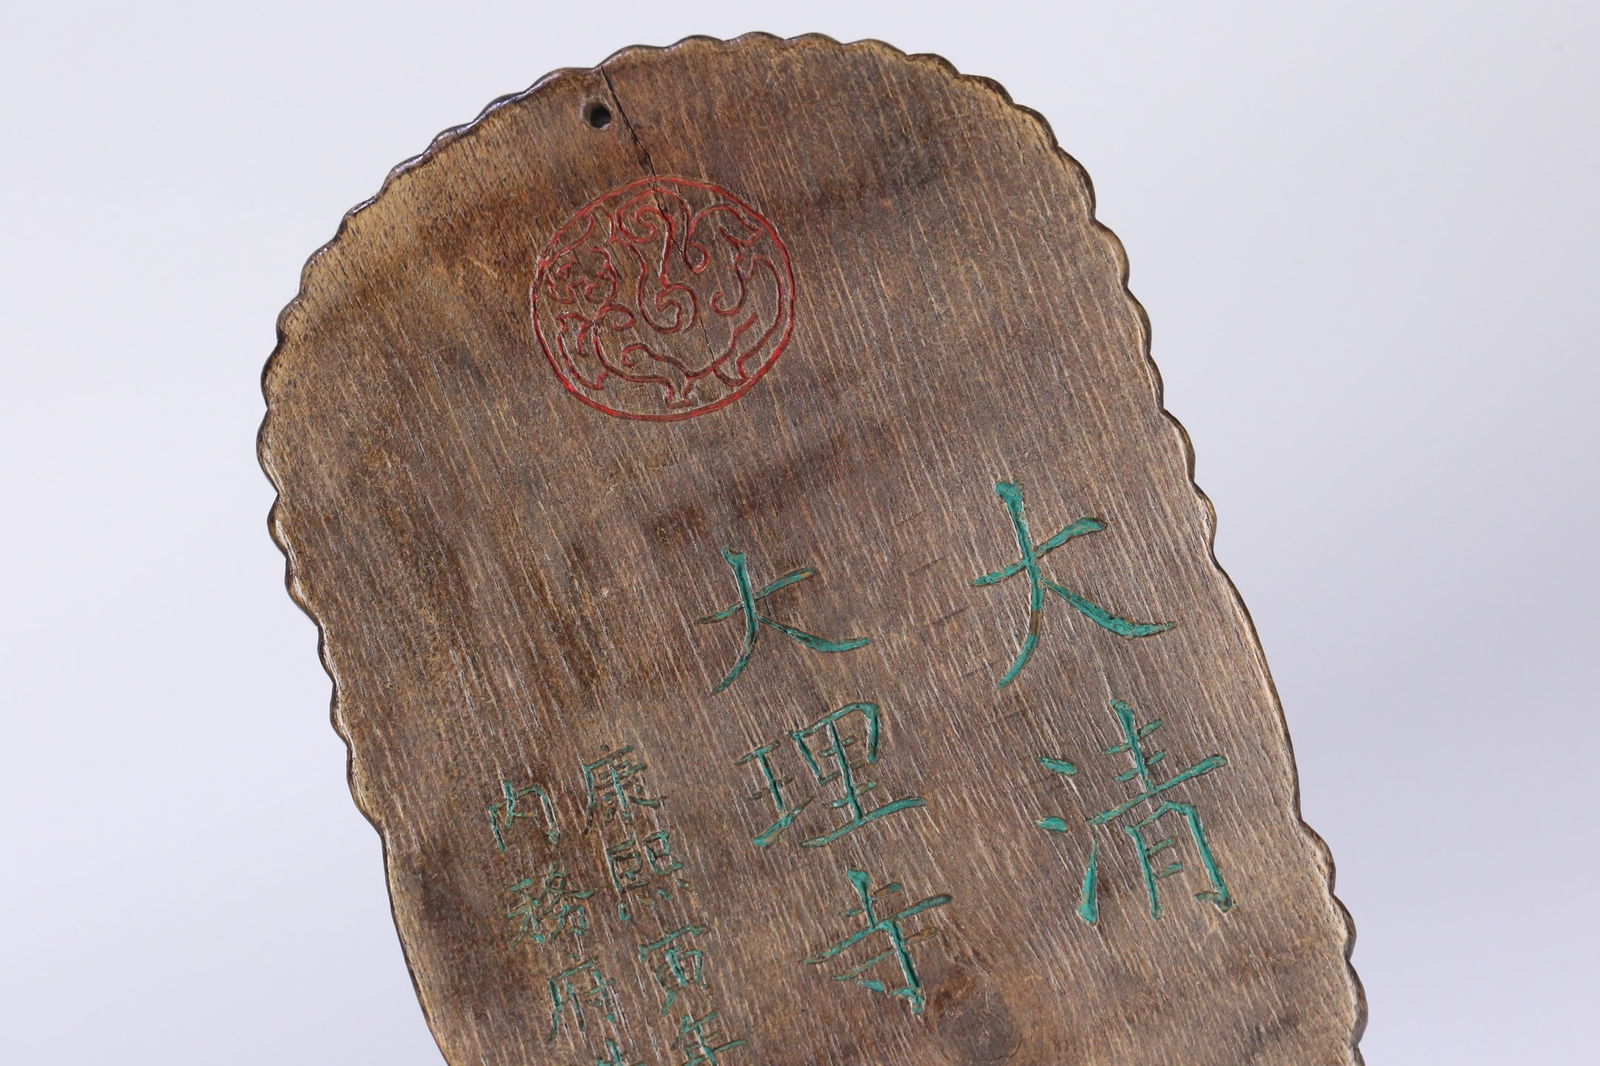 大清
大理寺
康熙寅年
內務府